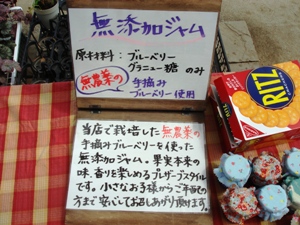 無添加ジャム
原材料：ブルーベリー
グラニュー糖 のみ
無農薬の
手摘み
ブルーベリー使用
当店で栽培した無農薬の
手摘みブルーベリーを使った
無添加ジャム。果実本来の
味、香りを楽しめるプレザーブスタイル
です。小さなお子様からご年配の
方まで安心してお召しあがり頂けます。
RITZ